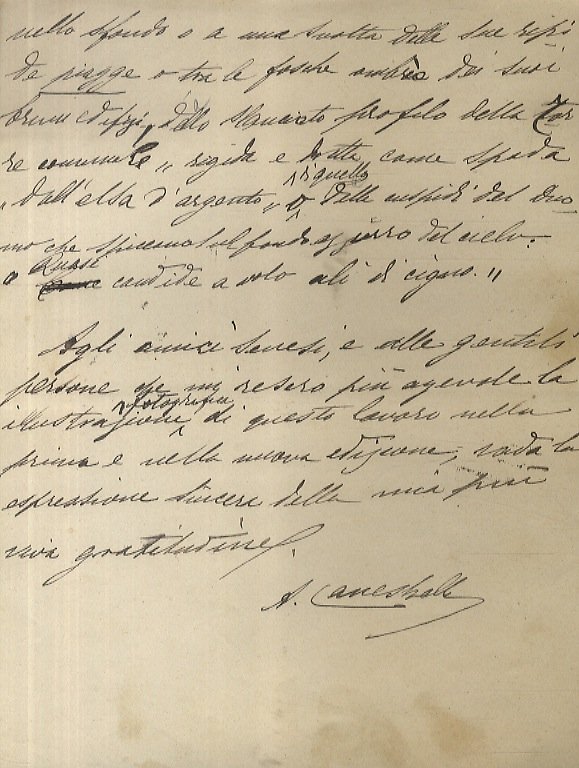 nello sfondo o a una svolta delle sue ripi
de piagge o tra le fosche ombre dei suoi
bruni edifizi, dello slanciato profilo della Tor
re comunale „ rigida e dritta come spada
„ dall'elsa d'argento „ o di quello delle cuspidi del Duo
mo che spiccano sul fondo azzurro del cielo.
o quasi candide a volo ali di cigno. „
Agli amici senesi, e alle gentili
persone che mi resero più agevole la
illustrazione fotografica di questo lavoro nella
prima e nella nuova edizione, vada la
espressione sincera della mia più
viva gratitudine.
A. Canestrelli